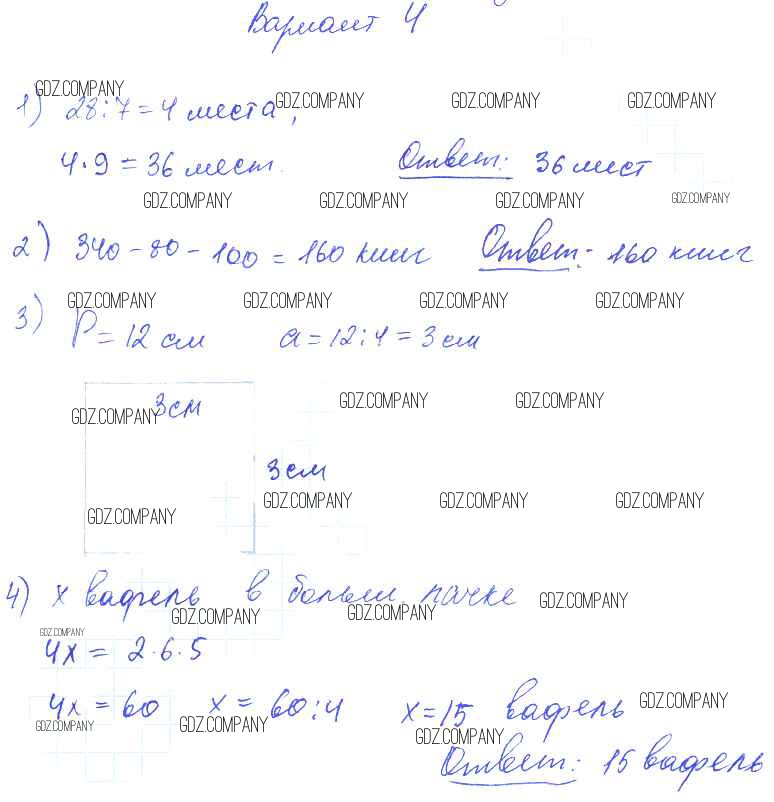 Вариант 4
GDZ.COMPANY
1) 28:7 = 4 места,
GDZ.COMPANY GDZ.COMPANY GDZ.COMPANY
4·9 = 36 мест. Ответ: 36 мест
GDZ.COMPANY GDZ.COMPANY GDZ.COMPANY GDZ.COMPANY
2) 340 - 80 - 100 = 160 книг Ответ: 160 книг
GDZ.COMPANY GDZ.COMPANY GDZ.COMPANY GDZ.COMPANY
3) P = 12 см a = 12:4 = 3 см
3 см GDZ.COMPANY GDZ.COMPANY
GDZ.COMPANY
3 см
GDZ.COMPANY GDZ.COMPANY GDZ.COMPANY
GDZ.COMPANY
4) x вафель в больш. пачке GDZ.COMPANY
GDZ.COMPANY GDZ.COMPANY
GDZ.COMPANY
4x = 2·6·5
4x = 60 x = 60:4 x = 15 вафель GDZ.COMPANY
GDZ.COMPANY GDZ.COMPANY GDZ.COMPANY
Ответ: 15 вафель